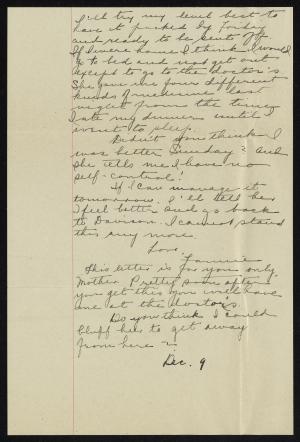 I'll try my level best to
have it packed by Friday
and ready to be sent off.
If I were home I think I would
go to bed and not get out
except to go to the doctor's.
She gave me four different
kinds of medicine last
night from the time
I ate my dinner until I
went to sleep.
Didn't you think I
was better Sunday? and
she tells me I have no
self-control!
If I can manage it
tomorrow I'll tell her
I feel better and go back
to Davison. I cannot stand
this any more.
Love
Fannie
This letter is for you only,
Mother. Pretty soon after
you get this you will have
me at the doctor's.
Do you think I could
bluff her to get away
from here
Dec. 9